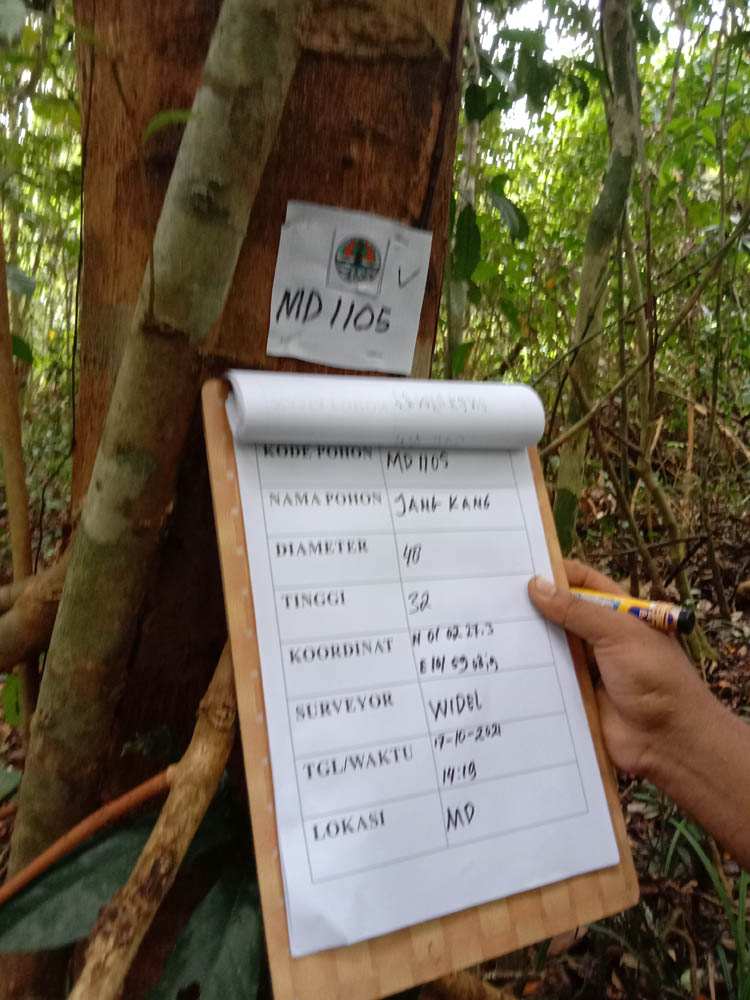 MD 1105
KODE POHON MD 1105
NAMA POHON JANG KANG
DIAMETER 48
TINGGI 32
KOORDINAT N 01 02 27.3
SURVEYOR WIDEL
TGL/WAKTU 17-10-2021
14:19
LOKASI MD